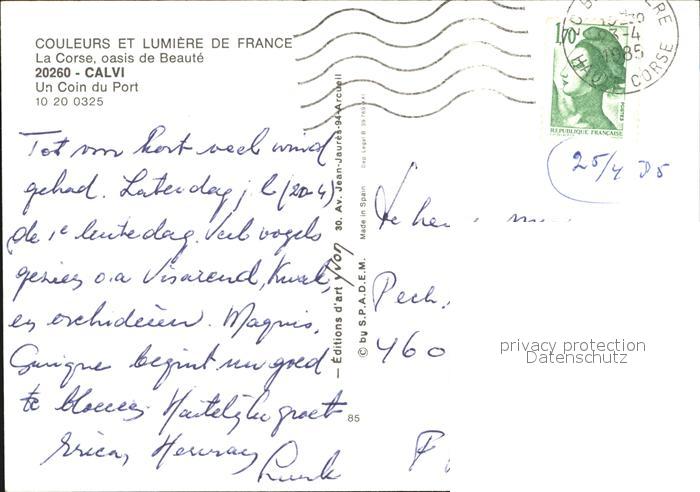 COULEURS ET LUMIÈRE DE FRANCE
La Corse, oasis de Beauté
20260 - CALVI
Un Coin du Port
10 20 0325
Tot voor kort veel wind
gehad. Laterdag j.l. (20-4)
de 1e lentedag. Veel vogels
gezien o.a. Visarend,
en orchideeën. Maquis,
Garigue begint nu goed
te bloeien Hartelijke groet
Erica, Herman
— Éditions d'art yvon 30, Av. Jean-Jaurès-94-Arcueil
© by S.P.A.D.E.M. Made in Spain
85
1,70
POSTES
REPUBLIQUE FRANÇAISE
1985
HAUTE CORSE
25/4 85
Pech.
460
F
privacy protection
Datenschutz